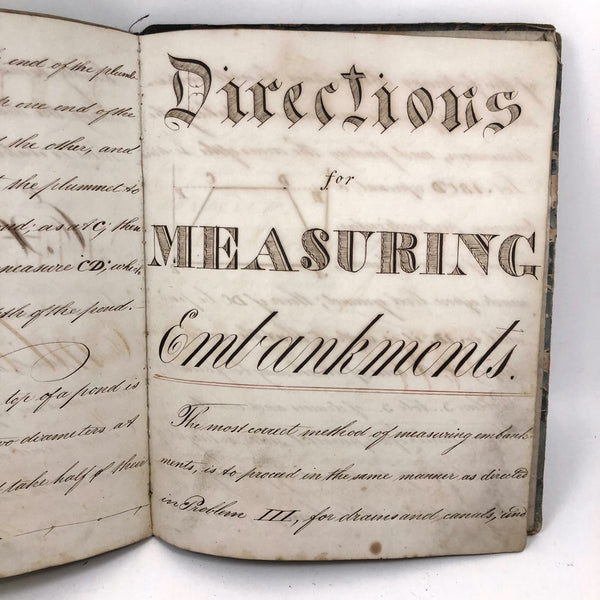 end of the plumb-
one end of the
the other, and
the plummet to
nd; as at C; then
measure CD; which
th of the pond.
top of a pond is
wo diameters at
d take half of their
Directions
for
MEASURING
Embankments.
The most correct method of measuring embank-
ments, is to proceed in the same manner as directed
in Problem III, for drains and canals; and